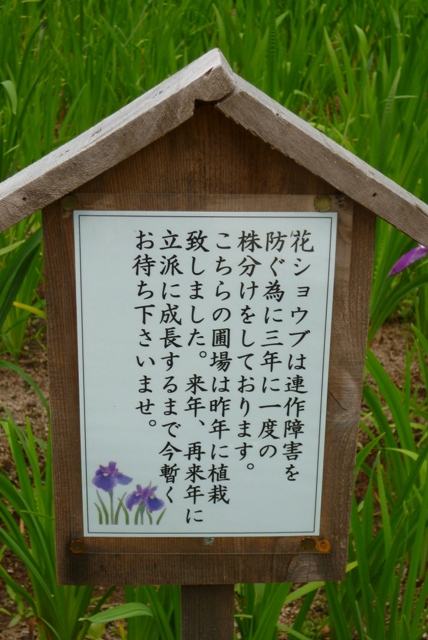 花ショウブは連作障害を
防ぐ為に三年に一度の
株分けをしております。
こちらの圃場は昨年に植栽
致しました。来年、再来年に
立派に成長するまで今暫く
お待ち下さいませ。